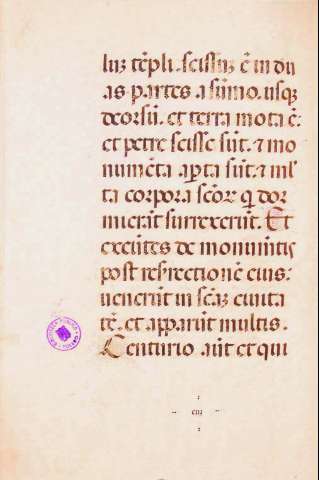 luʒ tẽpli. scissuʒ ẽ in du
as partes a sũmo usqʒ
deorsũ. et terra mota ẽ:
et petre scisse sũt. ⁊ mo
numẽta apta sũt. ⁊ ml̃
ta corpora scõrꝝ q̃ dor
mierãt surrexerũt. Et
exeũtes de monumẽtis
post resrectionẽ eius:
uenerũt in scãʒ ciuita
tẽ. et apparũt multis.
Centurio aũt et qui